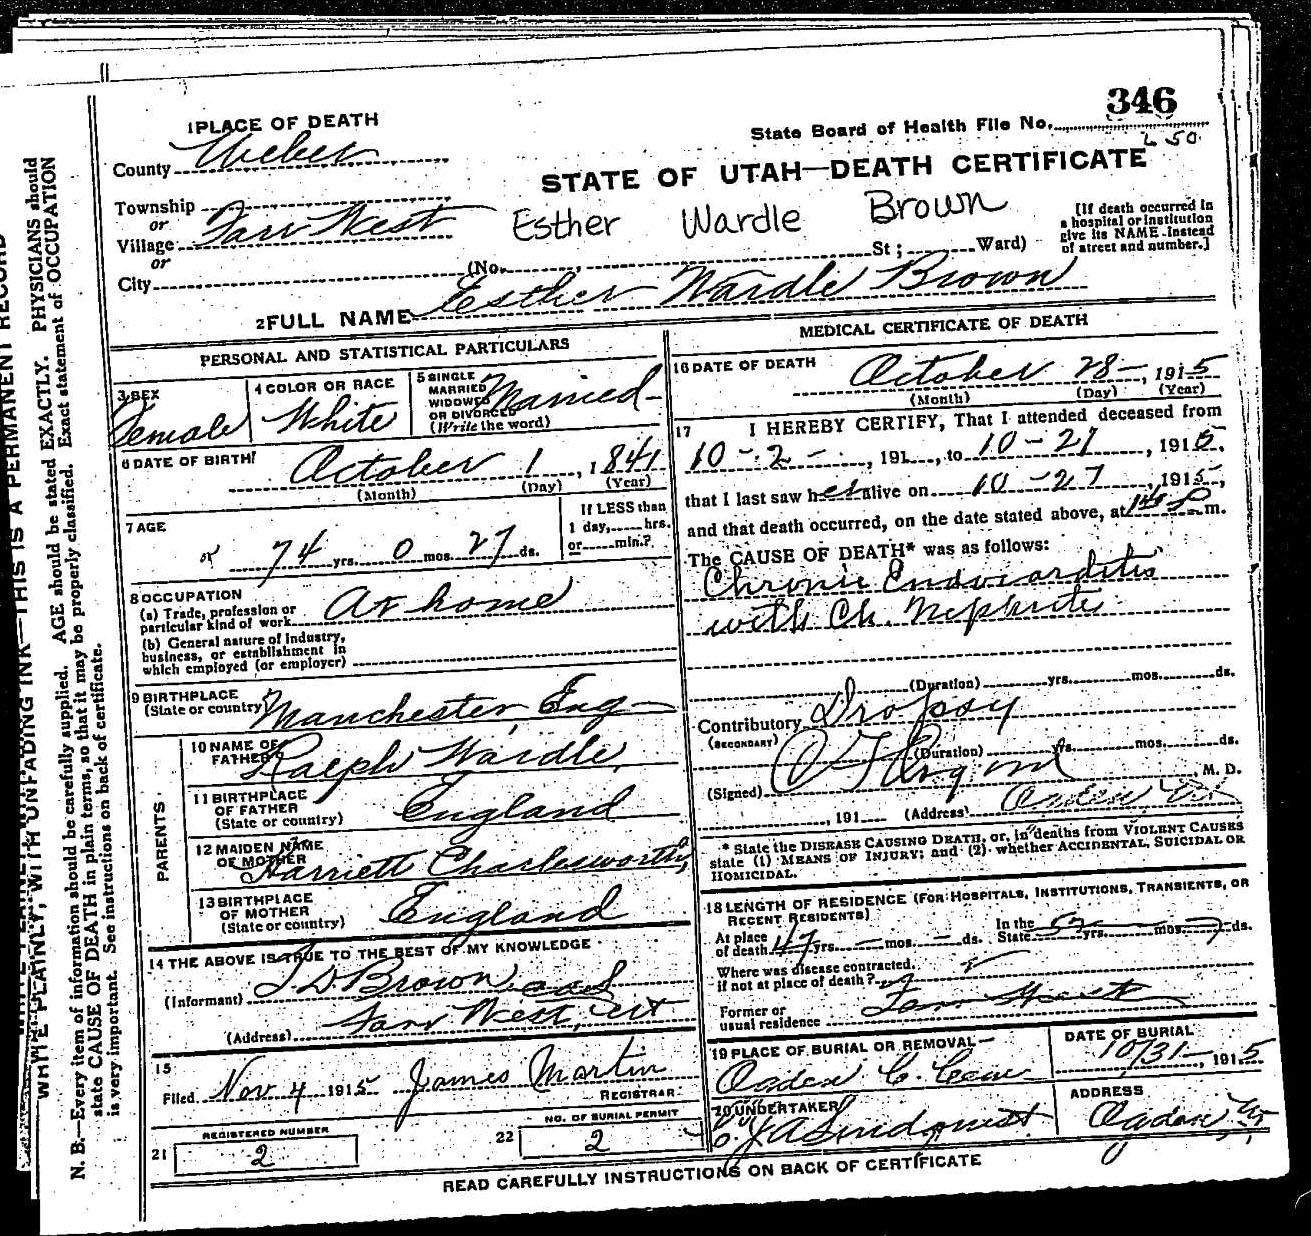 346
State Board of Health File No.
L 50
1 PLACE OF DEATH
County Weber
STATE OF UTAH—DEATH CERTIFICATE
Township
or
Village Farr West
or
City
Esther Wardle Brown
[If death occurred in
a hospital or institution
give its NAME instead
of street and number.]
(No. St; Ward)
2 FULL NAME Esther Wardle Brown
PERSONAL AND STATISTICAL PARTICULARS
3 SEX
Female
4 COLOR OR RACE
White
5 SINGLE
MARRIED
WIDOWED
OR DIVORCED
(Write the word)
Married
6 DATE OF BIRTH
October 1, 1841
(Month) (Day) (Year)
7 AGE
or 74 yrs. 0 mos. 27 ds.
If LESS than
1 day, hrs.
or min.?
8 OCCUPATION
(a) Trade, profession or
particular kind of work At home
(b) General nature of industry,
business, or establishment in
which employed (or employer)
9 BIRTHPLACE
(State or country) Manchester, Eng
PARENTS
10 NAME OF
FATHER Ralph Wardle
11 BIRTHPLACE
OF FATHER
(State or country) England
12 MAIDEN NAME
OF MOTHER Harriett Charlesworth
13 BIRTHPLACE
OF MOTHER
(State or country) England
14 THE ABOVE IS TRUE TO THE BEST OF MY KNOWLEDGE
(Informant) Brown
(Address) Farr West, Ut
15
Filed Nov 4 1915 James Martin
REGISTRAR
REGISTERED NUMBER
21 2
NO. OF BURIAL PERMIT
22 2
MEDICAL CERTIFICATE OF DEATH
16 DATE OF DEATH
October 28—, 1915
(Month) (Day) (Year)
17 I HEREBY CERTIFY, That I attended deceased from
10-2-, 191, to 10-27, 1915,
that I last saw her alive on 10-27, 1915,
and that death occurred, on the date stated above, at m.
The CAUSE OF DEATH* was as follows:
Chronic Endocarditis
with Ch. Nephritis
(Duration) yrs. mos. ds.
Contributory Dropsy
(SECONDARY)
(Duration) yrs. mos. ds.
(Signed) M. D.
, 191 (Address) Ogden, Ut
* State the DISEASE CAUSING DEATH, or, in deaths from VIOLENT CAUSES
state (1) MEANS OF INJURY; and (2) whether ACCIDENTAL, SUICIDAL OR
HOMICIDAL.
18 LENGTH OF RESIDENCE (FOR HOSPITALS, INSTITUTIONS, TRANSIENTS, OR
RECENT RESIDENTS)
At place
of death 47 yrs. — mos. — ds.
In the
State yrs. mos. ds.
Where was disease contracted,
if not at place of death?
Former or
usual residence Farr West
19 PLACE OF BURIAL OR REMOVAL
Ogden C. Cem
DATE OF BURIAL
10/31—, 1915
20 UNDERTAKER
J A Lindquist
ADDRESS
Ogden, Ut
READ CAREFULLY INSTRUCTIONS ON BACK OF CERTIFICATE
WRITE PLAINLY, WITH UNFADING INK—THIS IS A PERMANENT RECORD
N. B.—Every item of information should be carefully supplied. AGE should be stated EXACTLY. PHYSICIANS should
state CAUSE OF DEATH in plain terms, so that it may be properly classified. Exact statement of OCCUPATION
is very important. See instructions on back of certificate.